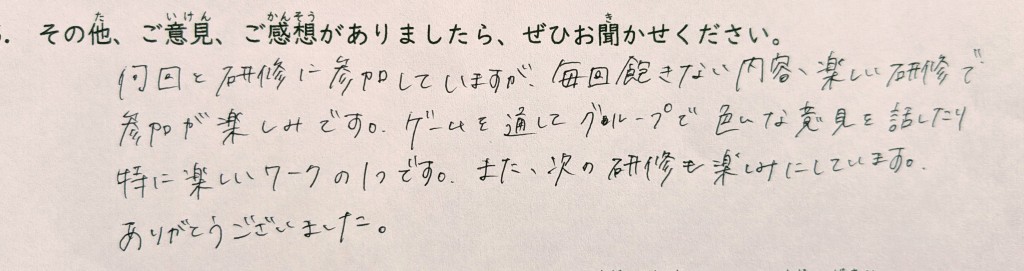 . その他、ご意見、ご感想がありましたら、ぜひお聞かせください。
何回と研修に参加していますが、毎回飽きない内容、楽しい研修で
参加が楽しみです。ゲームを通してグループで色んな意見を話したり
特に楽しいワークの1つです。また、次の研修も楽しみにしています。
ありがとうございました。